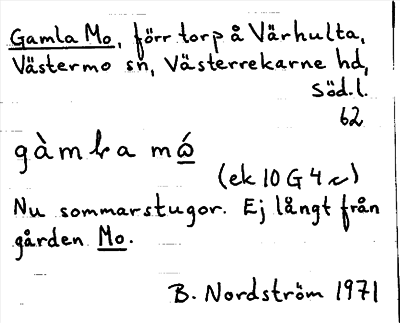 Gamla Mo, förr torp å Värhulta,
Västermo sn, Västerrekarne hd,
Söd.l.
62
gàmla mó
(ek 10 G 4 ~)
Nu sommarstugor. Ej långt från
gården Mo.
B. Nordström 1971